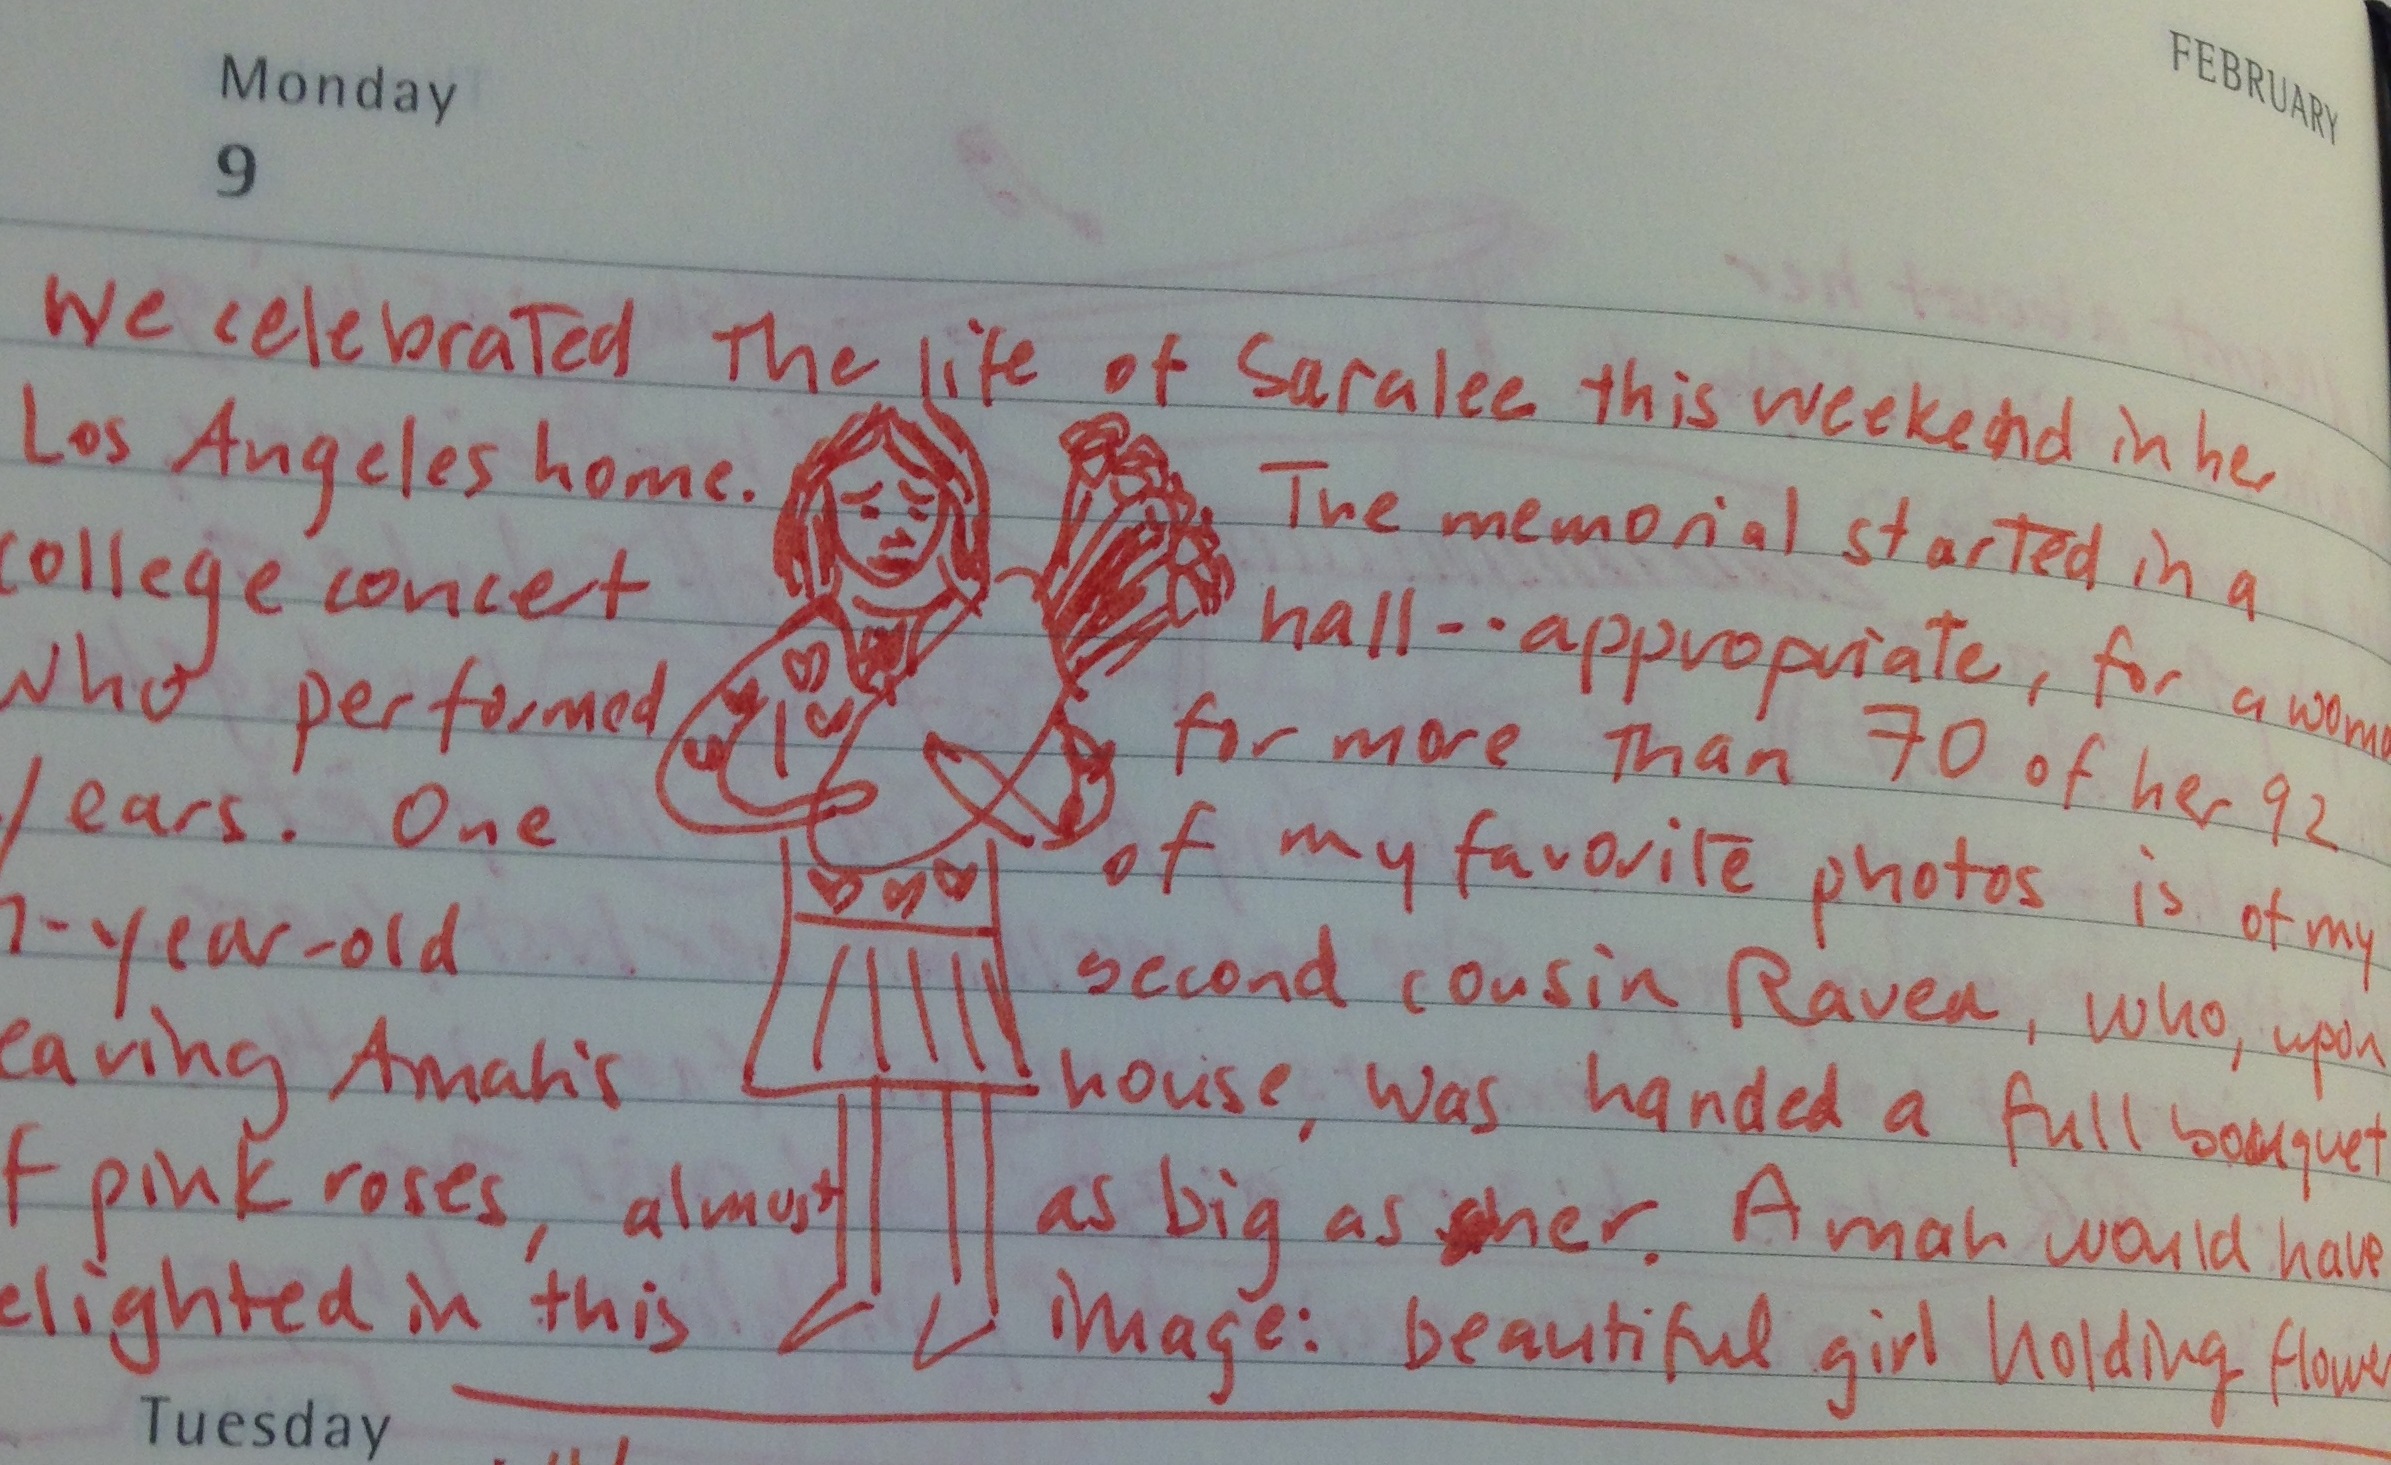 Monday
FEBRUARY
9
We celebrated The life of Saralee this weekend in her
Los Angeles home. The memorial started in a
college concert hall--appropriate, for a woma
who performed for more Than 70 of her 92
years. One of my favorite photos is of my
7-year-old second cousin Ravea, who, upon
eaving Amah's house, was handed a full bouquet
f pink roses, almost as big as her. Amah would have
elighted in this image: beautiful girl holding flower
Tuesday